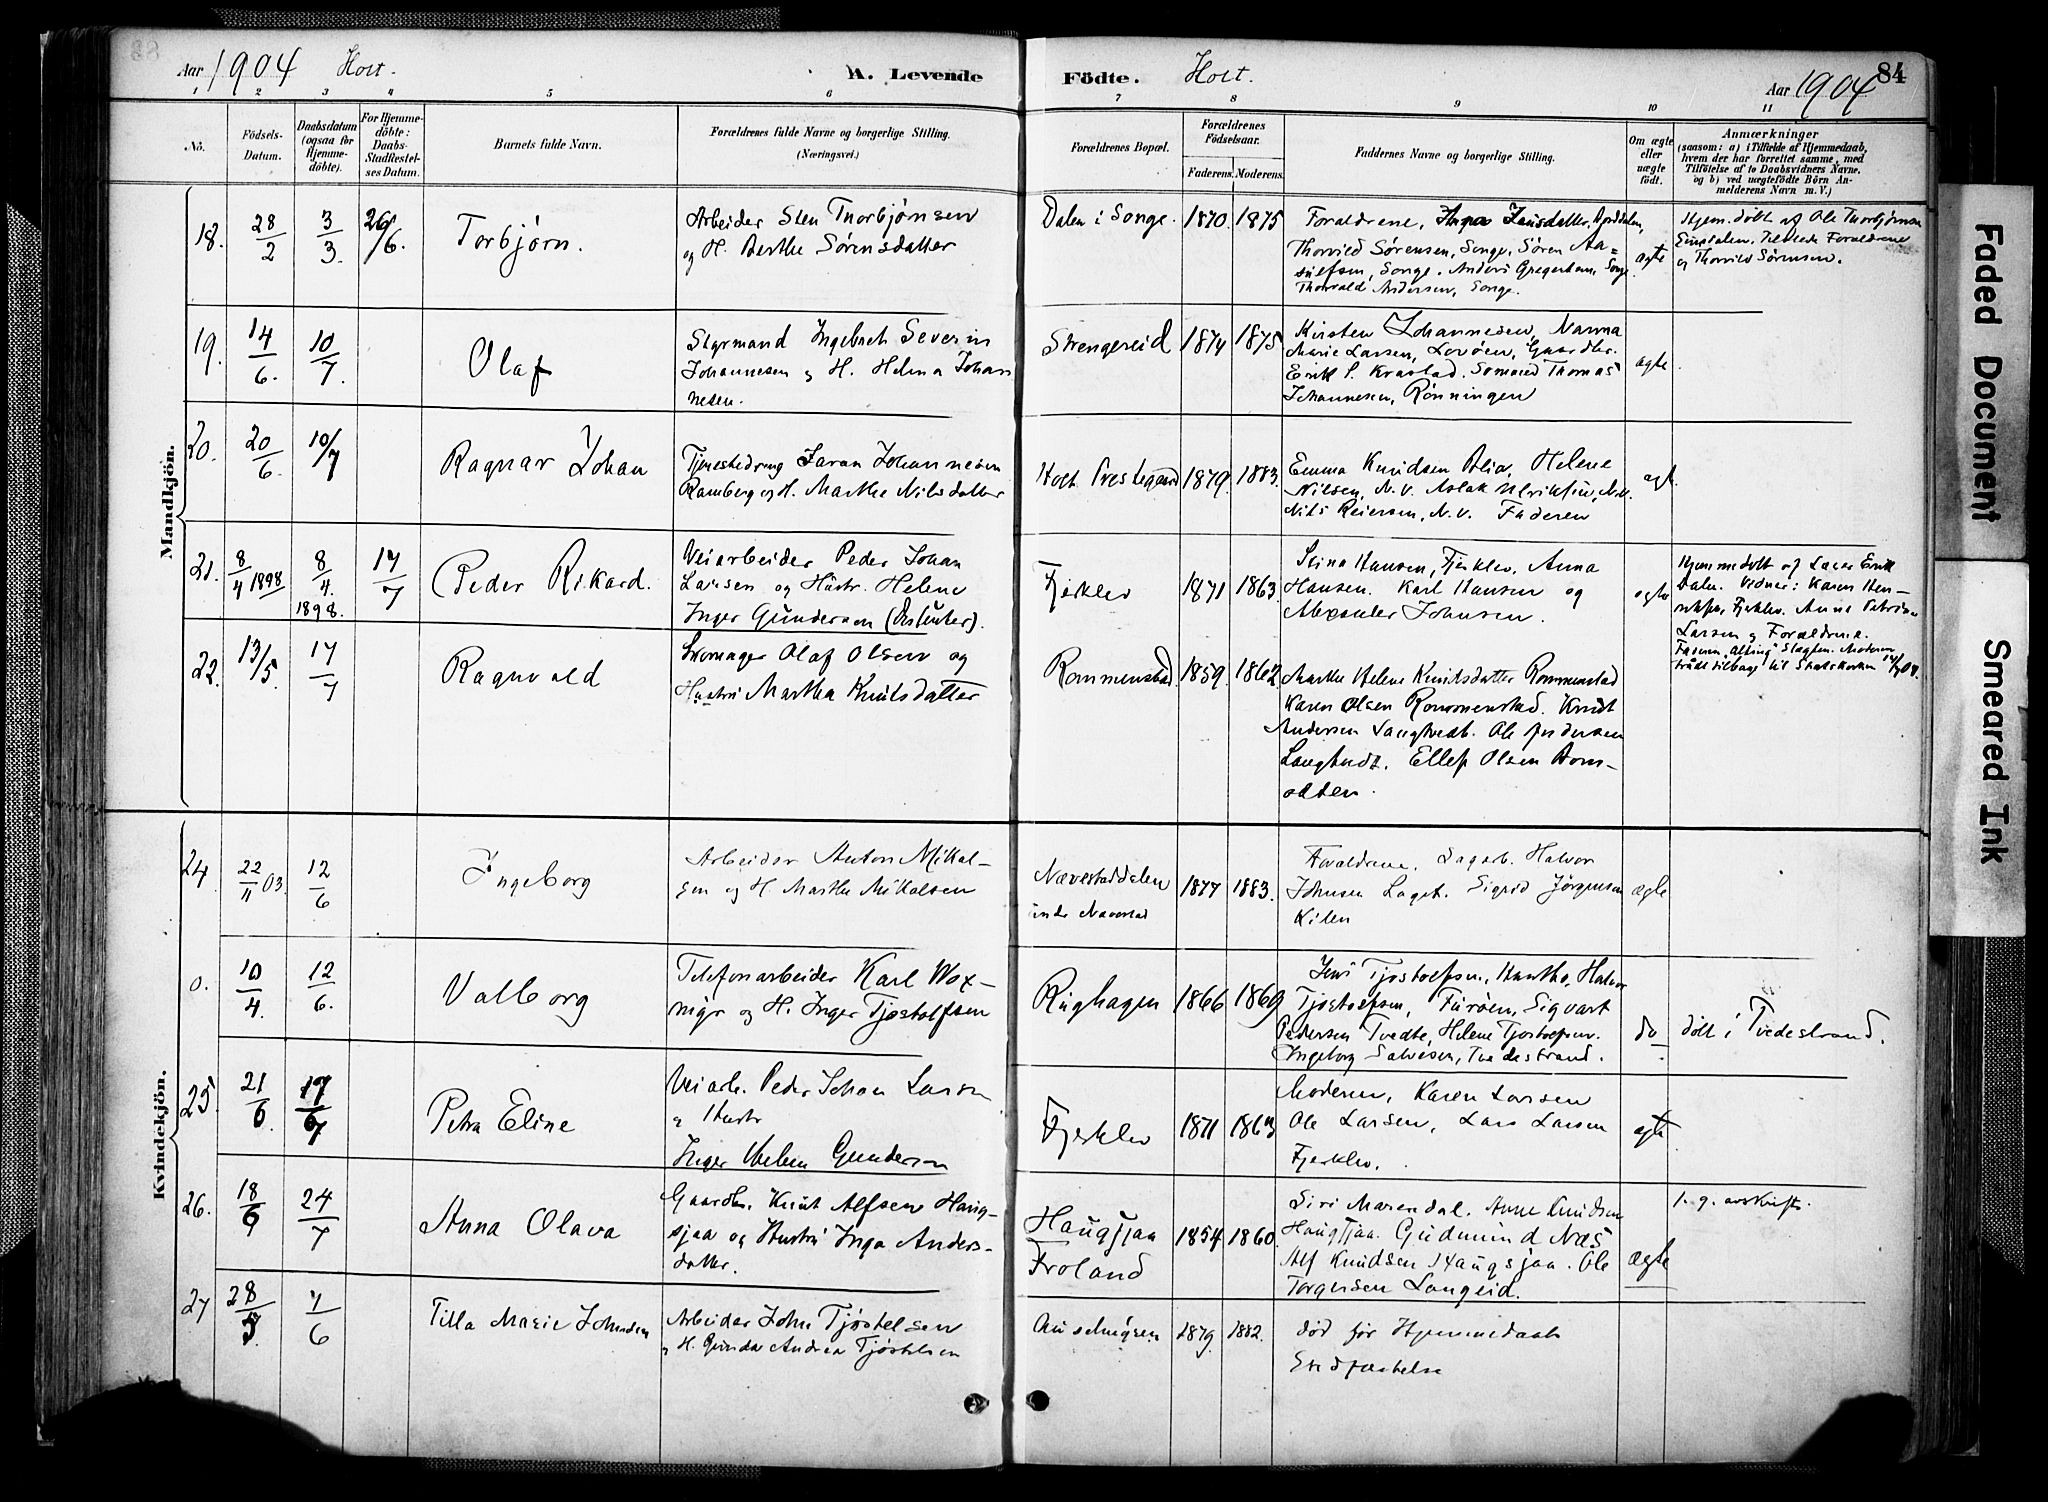 Aar 1904 Holt. A. Levende Födte. Holt. Aar 1904 84
1 2 3 4 5 6 7 8 9 10 11
No.
Födsels-Datum.
Daabsdatum (ogsaa for Hjemme-döbte).
For Hjemme-döbte: Daabs-Stadfæstel-ses Datum.
Barnets fulde Navn.
Forældrenes fulde Navne og borgerlige Stilling.
(Næringsvei.)
Forældrenes Bopæl.
Forældrenes Födselsaar.
Faderens. Moderens.
Faddernes Navne og borgerlige Stilling.
Om ægte eller uægte födt.
Anmærkninger
(saasom: a) i Tilfælde af Hjemmedaab,
hvem der har forrettet samme, med
Tilföielse af to Daabsvidners Navne.
og b) ved uægtefödte Börn An-
melderens Navn m. V.)
Mandkjön.
18. 28/2 3/3. 26/6. Torbjørn.
Arbeider Sten Thorbjørnsen
og H. Berthe Sørensdatter
Dalen i Songe. 1870. 1875
Forældrene,
Thorvild Sørensen, Songe, Søren Aa=
sulfsen, Songe. Anders Gregersen, Songe.
Thorvald Andersen, Songe.
ægte
Hjem. døbt af Ole Thorbjørnsen
Tilstede Forældrene
og Thorvild Sørensen.
19. 14/6. 10/7. Olaf
Styrmand Ingebret Severin
Johannesen og H. Helma Johan
nesen.
Strengereid 1874 1875
Kirsten Johannesen, Nanna
Marie Larsen, Lovøen, Gaardbr.
Erik S. Kvastad. Sømand Thomas
Johannesen, Rønningen
ægte.
20. 20/6. 10/7 Ragnar Johan
Tjenestedreng Johannesen
Ramberg og H. Marthe Nilsdatter
Holt Prestegaard 1879. 1883.
Emma Knudsen Helene
Nilsen, N. V. Aslak Ulriksen, N.V.
Nils Reiersen, N. V. Faderen
ægt.
21. 8/4 1898 8/4. 1898. 17/7 Peder Rikard.
Veiarbeider Peder Johan
Larsen og Hustr. Helene
Inger Gunderson (Dissenter).
Fjerklev 1871 1863.
Stina Hansen, Fjerklev, Anna
Hansen. Karl Hansen og
Alexander Johnsen.
ægte
Hjemmedøbt af Lars Erik
Dalen. Vidner: Karen Hen-
riksen, Fjerklev. Anne Petrine
Larsen og Forældrene.
Moderen
traadt tilbage til Statskirken
22. 13/5. 17/7 Ragnvald
Skomager Olaf Olsen og
Hustru Martha Knutsdatter
Rommenstad. 1859. 1862
Marthe Helene Knutsdatter Rommenstad
Karen Olsen Rommenstad. Knut
Andersen Langtvedt. Ole Andersen
Langtvedt. Ellef Olsen Horn-
olten.
Kvindekjön.
24. 22/11 03. 12/6 Ingeborg
Arbeider Anton Mikal-
sen og H. Marthe Mikalsen
Nævestaddalen
under Nævestad
1877 1883.
Forældrene. Sagarb. Halvor
Johnsen Laget. Sigrid Jørgensen
Kilen
ægte
0. 10/4. 12/6. Valborg
Telefonarbeider Karl Wox-
nigr og H. Inger Tjøstolfsen
Rughagen 1866 1869
Jens Tjøstolfsen, Halvor
Tjøstolfsen, Furøen, Sigvart
Pedersen Tvedte, Helene Tjøstolfsen.
Ingeborg Salvesen, Tvedestrand.
do
døbt i Tvedestrand.
25. 21/6. 17/7 Petra Eline
Veiarb. Peder Johan Larsen
og Hustr
Inger Helene Gunderson
Fjerklev 1871 1863
Moderen, Karen Larsen
Ole Larsen, Lars Larsen
Fjerklev.
ægte
26. 18/6 24/7 Anna Olava
Gaardbr. Knut Alfsen Haug-
sjaa og Hustru Inga Anders-
datter.
Haugsjaa
Froland
1854 1860
Siri Marendal. Anne Knudsen
Haugsjaa. Gudmund Næs
Alf Knudsen Haugsjaa. Ole
Torgersen Langeid.
ægte
1. g. avskrift.
27 28/5. 7/6 Tilla Marie Johnsen
Arbeider John Tjøstelsen
og H. Gunda Andrea Tjøstelsen
1879. 1882.
død før Hjemmedaab
Stadfæstelse
Faded Document
Smeared Ink